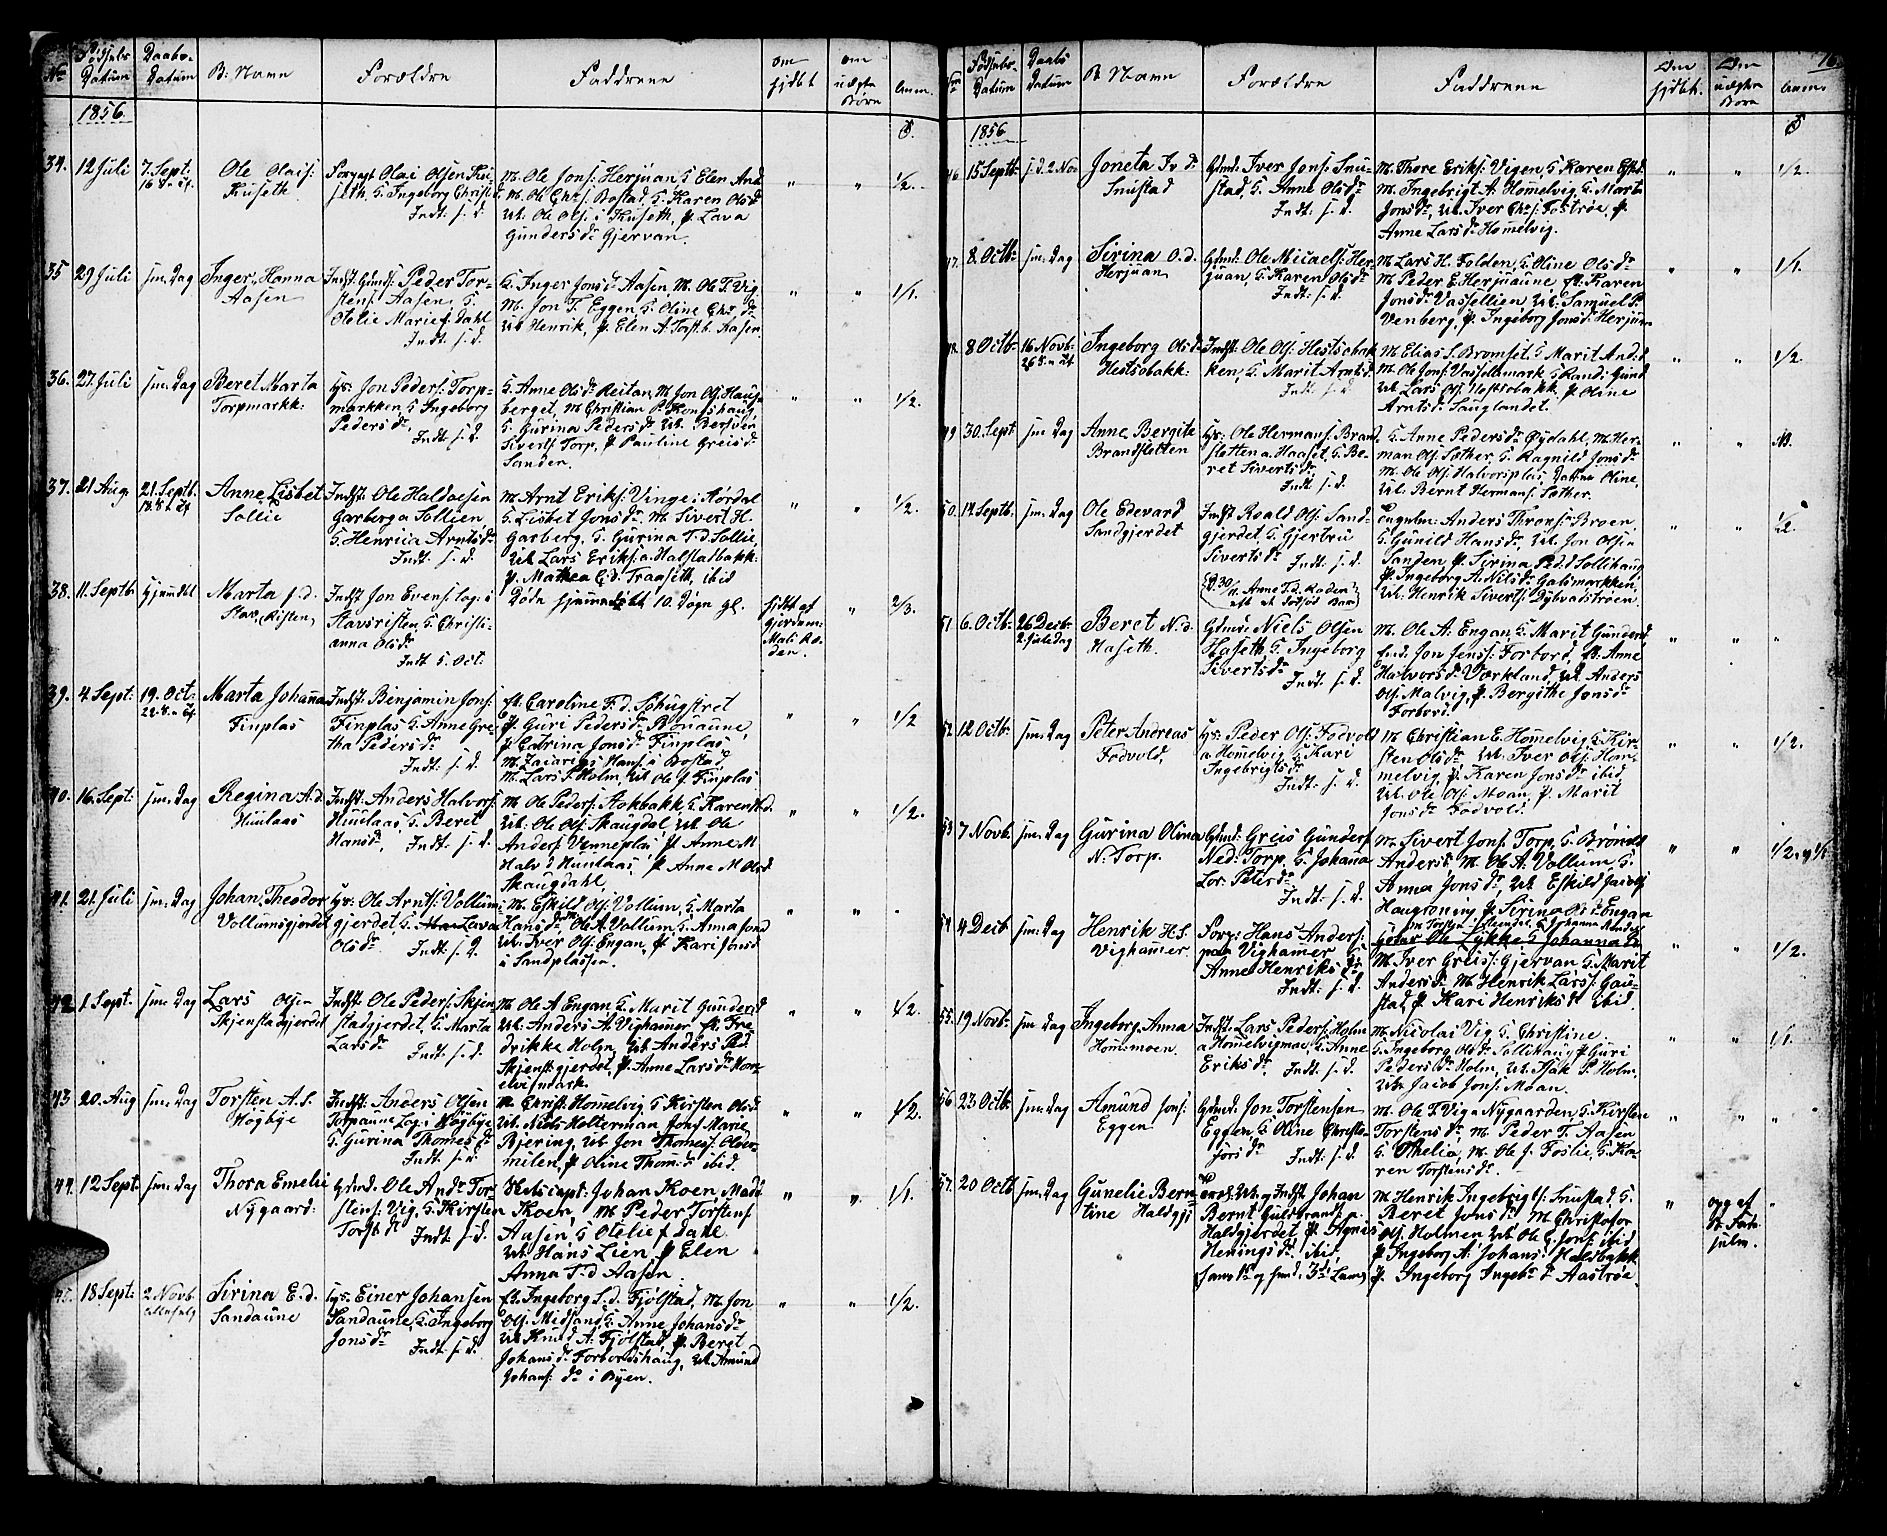 No Fødsels Datum Daabs. Datum B: Navn Forældre Faddrene om hjdbt om uægte Børn Anm.
1856
34. 12 Juli 7. Sept. Ole Olais:
Kuseth
Olai Olsen
S. Ingeborg Christ
Indt: s. d.
M. Ole Jons: Herjuan, G Elen And
M. Ole Chrs. Bostad, G. Karen Olsdr
Uk. Ole Ols. i Kuseth, P. Lava
Gundersdr Gjervan.
1/2.
35 29 Juli sm. Dag Inger Hanna
Aasen
Indst. Gmdf. Peder Tor-
stens: Aasen, G
Otelie Marie f Dahl
Indt. s. d.
G. Inger Jonsdr Aasen, M. Ole T. Vig
M. Jon T. Eggen, G. Oline Chr. dr
Uk Henrik, P. Elen A. Torstb. Aasen
1/1.
36. 27 Juli sm. Dag Beret Marta
Torpmarkk:
Hs: Jon Peders: Torp-
markken, G Ingeborg
Pedersdr
Indt s. d.
G. Anne Olsdr Reitan, M Jon Ols. Haus-
berget, M Christian P. Konshaug,
G. Gurina Pedersdr Uk. Bersven
Siverts Torp, P Pauline Greisdr
Sanden.
1/2.
37. 21 Aug 21. Septb. Anne Lisbet
Sollie
Indst. Ole Haldosen
Garberg a Sollien
G. Henrica Arntsdr
Indt. s. d.
M. Arnt Eriks: Vinge i Størdal
G. Lisbet Jonsdr, M. Sivert H.
Garberg, G. Gurina T.d. Sollie,
Uk. Lars Eriks: a Halstadbakk:
P. Mathea E.d. Traaseth, ibid
1/2.
38. 11. Septb hjemdbt Marta J.d.
Stav (Risten)
Indst Jon Evens. log: i
Stavsristen, G. Christi-
anna Olsdr
Indt 5 Oct:
Døde hjemmedøbt 10. Døgn gl.
hjdbt af
Gjordem:
Mali Ro-
den.
2/3.
39. 4. Sept: 19. Oct: Marta Johanna
Finplas
Indst: Benjamin Jons:
Finplas G. Anne Gre-
tha Pedersdr
Indt: s. d.
Caroline F.d. Schugstret
P. Guri Pedersdr Bonaune,
P Catrina Jonsdr Finplas
M. Zacarias Hans: i Bostad
M. Lars P. Holm, Uk Ole J. Finplas
1/2
40. 16. Sept: sm: Dag Regina A.d.
Huulaas
Indst: Anders Halvors:
Huulaas, G. Beret
Hansdr Indt: s. d.
M. Ole Peders: Aokbakk G. Karen
Uk: Ole Ols. Skaugdal Uk Ole
Anders Venneplas P. Anne M
Halv d Huulaas, P Anne M Olsd
Skaugdahl,
1/2.
41. 21. Juli sm: Dag Johan Theodor
Vollumsgjerdet
Hs: Ole Arnts. Vollum-
gjerdet G. Lava
Olsdr Indt: s. d.
M. Eskild Ols: Vollum, G. Marta
Hansdr Ole A. Vollum G. Anna Jonsd
Uk Iver Ols: Engan, P Kari Jonsd
i Sandplassen.
42 1. Sept. sm: Dag Lars Olsen
Skjenstadgjerdet
Indst: Ole Peders: Skjen-
stadgjerdet, G. Marta
Larsdr Indt: s. d.
M. Ole A Engan, G. Marit Gundersd
Uk. Anders A. Vighamer, Fre-
drikke Holm, Uk: Anders Ped
Skjenstgjerdet, P. Anne Larsdr Hom-
elvigmark
1/2.
43 20. Aug sm: Dag Torsten A. S.
Høgbye
Indst: Anders Olsen
Torpaune Log: i Høgbye
G. Gurina Thomesdr
Indt: s. d.
M. Christ: Homelvig G Kirsten Olsd
Uk: Niels Holterman Jomf Marie
Bjering, Uk Jon Thomes: Older-
milen, P Oline Thom: d ibid.
1/2.
44. 12 Sept: sm: Dag Thora Emelie
Nygaard:
Gdmd. Ole And. Tor-
stens: Vig, G. Kirsten
Torstdr Indt. s. d.
Skibscapt: Johan Koen, Madm
Koen, M Peder Torstens
Aasen G Otelie f Dahl
Uk. Hans Lien P Elen
Anna T.d Aasen
1/1.
45. 18 Sept: 2. Novb Sirina E.d.
Sandaune
Hs: Einer Johansen
Sandaune, G. Ingeborg
Jonsdr Indt. s. d.
Ingeborg S.d. Fjølstad, M. Jon
Ols. Midsand, G. Anne Johansdr
Uk Knud A. Fjølstad, P. Beret
Johansdr Forbordshaug, Uk. Amund
Johans: dr i Byen.
1/2.
Fødsels. Datum Daabs Datum B. Navn Forældre Faddrene Om hjdbt. Om uægte Born Anm.
1856
46 15 Septb: s. d. 2 Nov Joneta Iv d.
Snustad
Gdmd: Iver Jons: Snu-
stad, G. Anne Olsdr
Indt: s. d.
M. Thore Eriks: Vigen G Karen
M. Ingebrigt A. Homelvig G. Marta
Jonsdr, Uk. Iver Chr: Fostrøe, P.
Anne Larsdr Homelvig.
1/2.
47. 8. Octb: sm: Dag Sirina O.d.
Herjuan
Gdmd: Ole Micaels: Her-
juan, G. Karen Olsdr
Indt: s. d.
M. Lars H. Folden, G. Oline Olsdr
M. Peder E. Herjuaune, Karen
Jonsdr Vassellien, Uk. Samuel P.
Venberg, P. Ingeborg Jonsd. Herjuan
1/1.
48. 8 Octb: 16 Novb: Ingeborg Olsd
Hestsobakk:
Indst: Ole Ols: Hestsobak-
ken, G. Marit Arntsdr
Indt: s. d
M. Elias S. Bromset, G Marit And. d
M. Ole Jons: Vassellmark G Randi Gund
Uk Lars Ols Hestsobakk P Oline
Arntsdr Sauglandet.
1/2.
49 30. Sept sm Dag Anne Bergite
Brandsletten
Hs: Ole Hermans: Brand-
sletten a Haaset, G. Be-
ret Sivertsdr
Indt: s. d.
G. Anne Pedersdr Øydahl, M. Her-
man Ols: Sother, G Ragnild Jonsdr
M. Ole Ols: Halvorsplas, Datter Oline,
Uk. Bernt Hermans: Sother.
50. 14. Septb. sm. Dag Ole Edevard
Sandgjerdet
Indst Roald Ols: Sand-
gjerdet G. Gjertru
Sivertsdr Indt. s. d.
Anne T.d. Roden
Anders Throns: Broen
G Gunild Hansdr, Uk. Jon Ols: a
Sanden, P Sirina Ped.d Sollihaug
P. Ingeborg A. Nilsdr Galsmarkken,
Uk. Henrik Siverts: Dybvadstrøen
1/2.
51 6. Octb: 26 Decb: Beret N.d.
2. Juledag Haseth.
Gdmd: Niels Olsen
Haseth G. Ingeborg
Sivertsdr
Indt. s. d.
M. Ole A. Engan, G. Marit Gundersd
Jon Jens: Forbord, Anne
Halvorsdr Værkland, Uk. Anders
Ols. Malvig, P. Bergithe Jonsdr
Forbord.
52. 12 Octb: sm: Dag Peter Andreas
Fodvold,
Hs: Peder Ols: Fodvold
a Homelvig, G Kari
Ingebrigtsdr
Indt: s. d.
M. Christian E. Homelvig G. Kir-
sten Olsdr Uk. Iver Ols: Hom-
melvig, P. Karen Jonsdr ibid
Uk. Ole Ols: Moan, P. Marit
Jonsdr Fodvold.
1/2.
53 7 Novb. sm. Dag Gurina Olina
N. Torp.
Gdmd: Greis Gunders
Ned: Torp, G. Johana
Lor: Petersdr
Indt: s. d.
M. Sivert Jons Torp, G. Brønild
Andersdr M. Ole A. Vollum, G.
Anna Jonsdr, Uk Eskild Jacobs
Haugroning, P. Sirina Ols d Engan
1/2. og 1/1
54 4. Decb sm: Dag Henrik H. S.
Vighamer.
Forp: Hans Anders:
paa Vighamer G
Anne Henriksdr
Indt: s. d.
Ole Lykke G Johanna
M. Iver Greis: Gjervan G. Marit
Andersdr M. Henrik Lars: Gau-
stad, P Kari Henriksdr ibid
1/2.
55. 19 Novb: sm Dag Ingeborg Anna
Homsmoen.
Indst. Lars Peders: Holm
a Homelvigmoe, G. Anne
Eriksdr Indt s. d.
M. Nicolai Vig G. Christine
G. Ingeborg Olsdr Sollihaug P Guri
Pedersdr Holm, Uk. Isak P. Holm,
Uk. Jacob Jons: Moan.
1/1.
56 23 Octb: sm: Dag Amund Jons:
Eggen
Gdmd: Jon Torstensen
Eggen, G Oline Christo-
forsdr Indt: s. d.
M. Ole T. Vig a Nygaarden, G. Kirsten
Torstensdr, M. Peder T. Aasen
G. Othelia, M. Ole J. Foslie, G. Ka-
ren Torstensdr.
57. 20 Octb sm: Dag Gunelie Bern-
tine Haldgj:
Uk. og Indst Johan
Bernt Guldbrands: a
Haldgjerdet, P Agnis
Heningsdr ibid,
hans 1ste og hend: 3die Leierm
M. Henrik Ingebrigts: Snustad G.
Beret Jonsdr M. Christofor
Ols: Holmen, Uk Ole E. Jons: ibid
P. Ingeborg A. Johans: Haldbakk
P. Ingeborg Ingebrdr Aastrøe.
opg af
dr Forh: